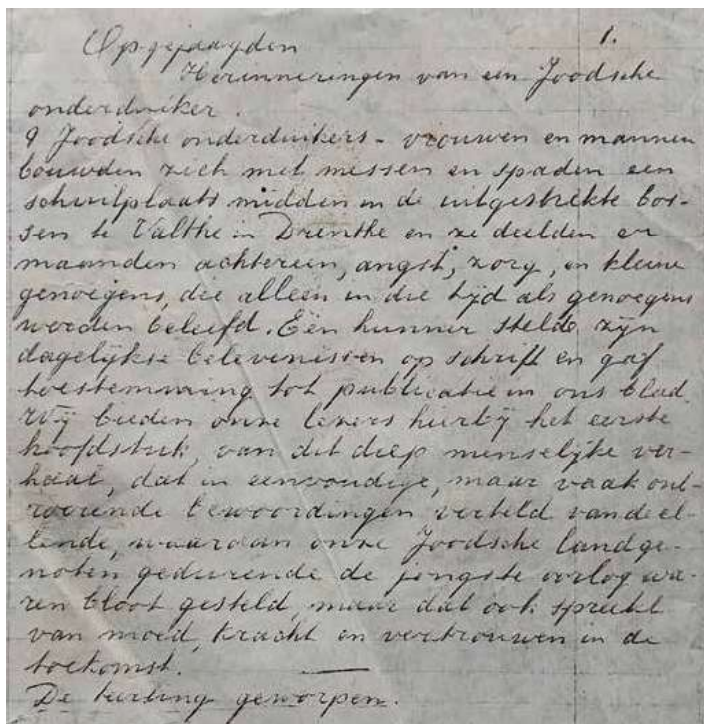 Opgejaagden 1.
Herinneringen van een Joodsche
onderduiker.
9 Joodsche onderduikers - vrouwen en mannen
bouwden zich met messen en spaden een
schuilplaats midden in de uitgestrekte bos-
sen te Valthe in Drenthe en ze deelden er
maanden achtereen, angst, zorg, en kleine
genoegens, die alleen in die tijd als genoegens
worden beleefd. Eén hunner stelde zijn
dagelijkse belevenissen op schrift en gaf
toestemming tot publicatie in ons blad.
Wij bieden onze lezers hierbij het eerste
hoofdstuk, van dit diep menselijke ver-
haal, dat in eenvoudige, maar vaak ont-
roerende bewoordingen verteld van de el-
lende, waaraan onze Joodsche landge-
noten gedurende de jongste oorlog wa-
ren bloot gesteld, maar dat ook spreekt
van moed, kracht en vertrouwen in de
toekomst.
De teerling geworpen.